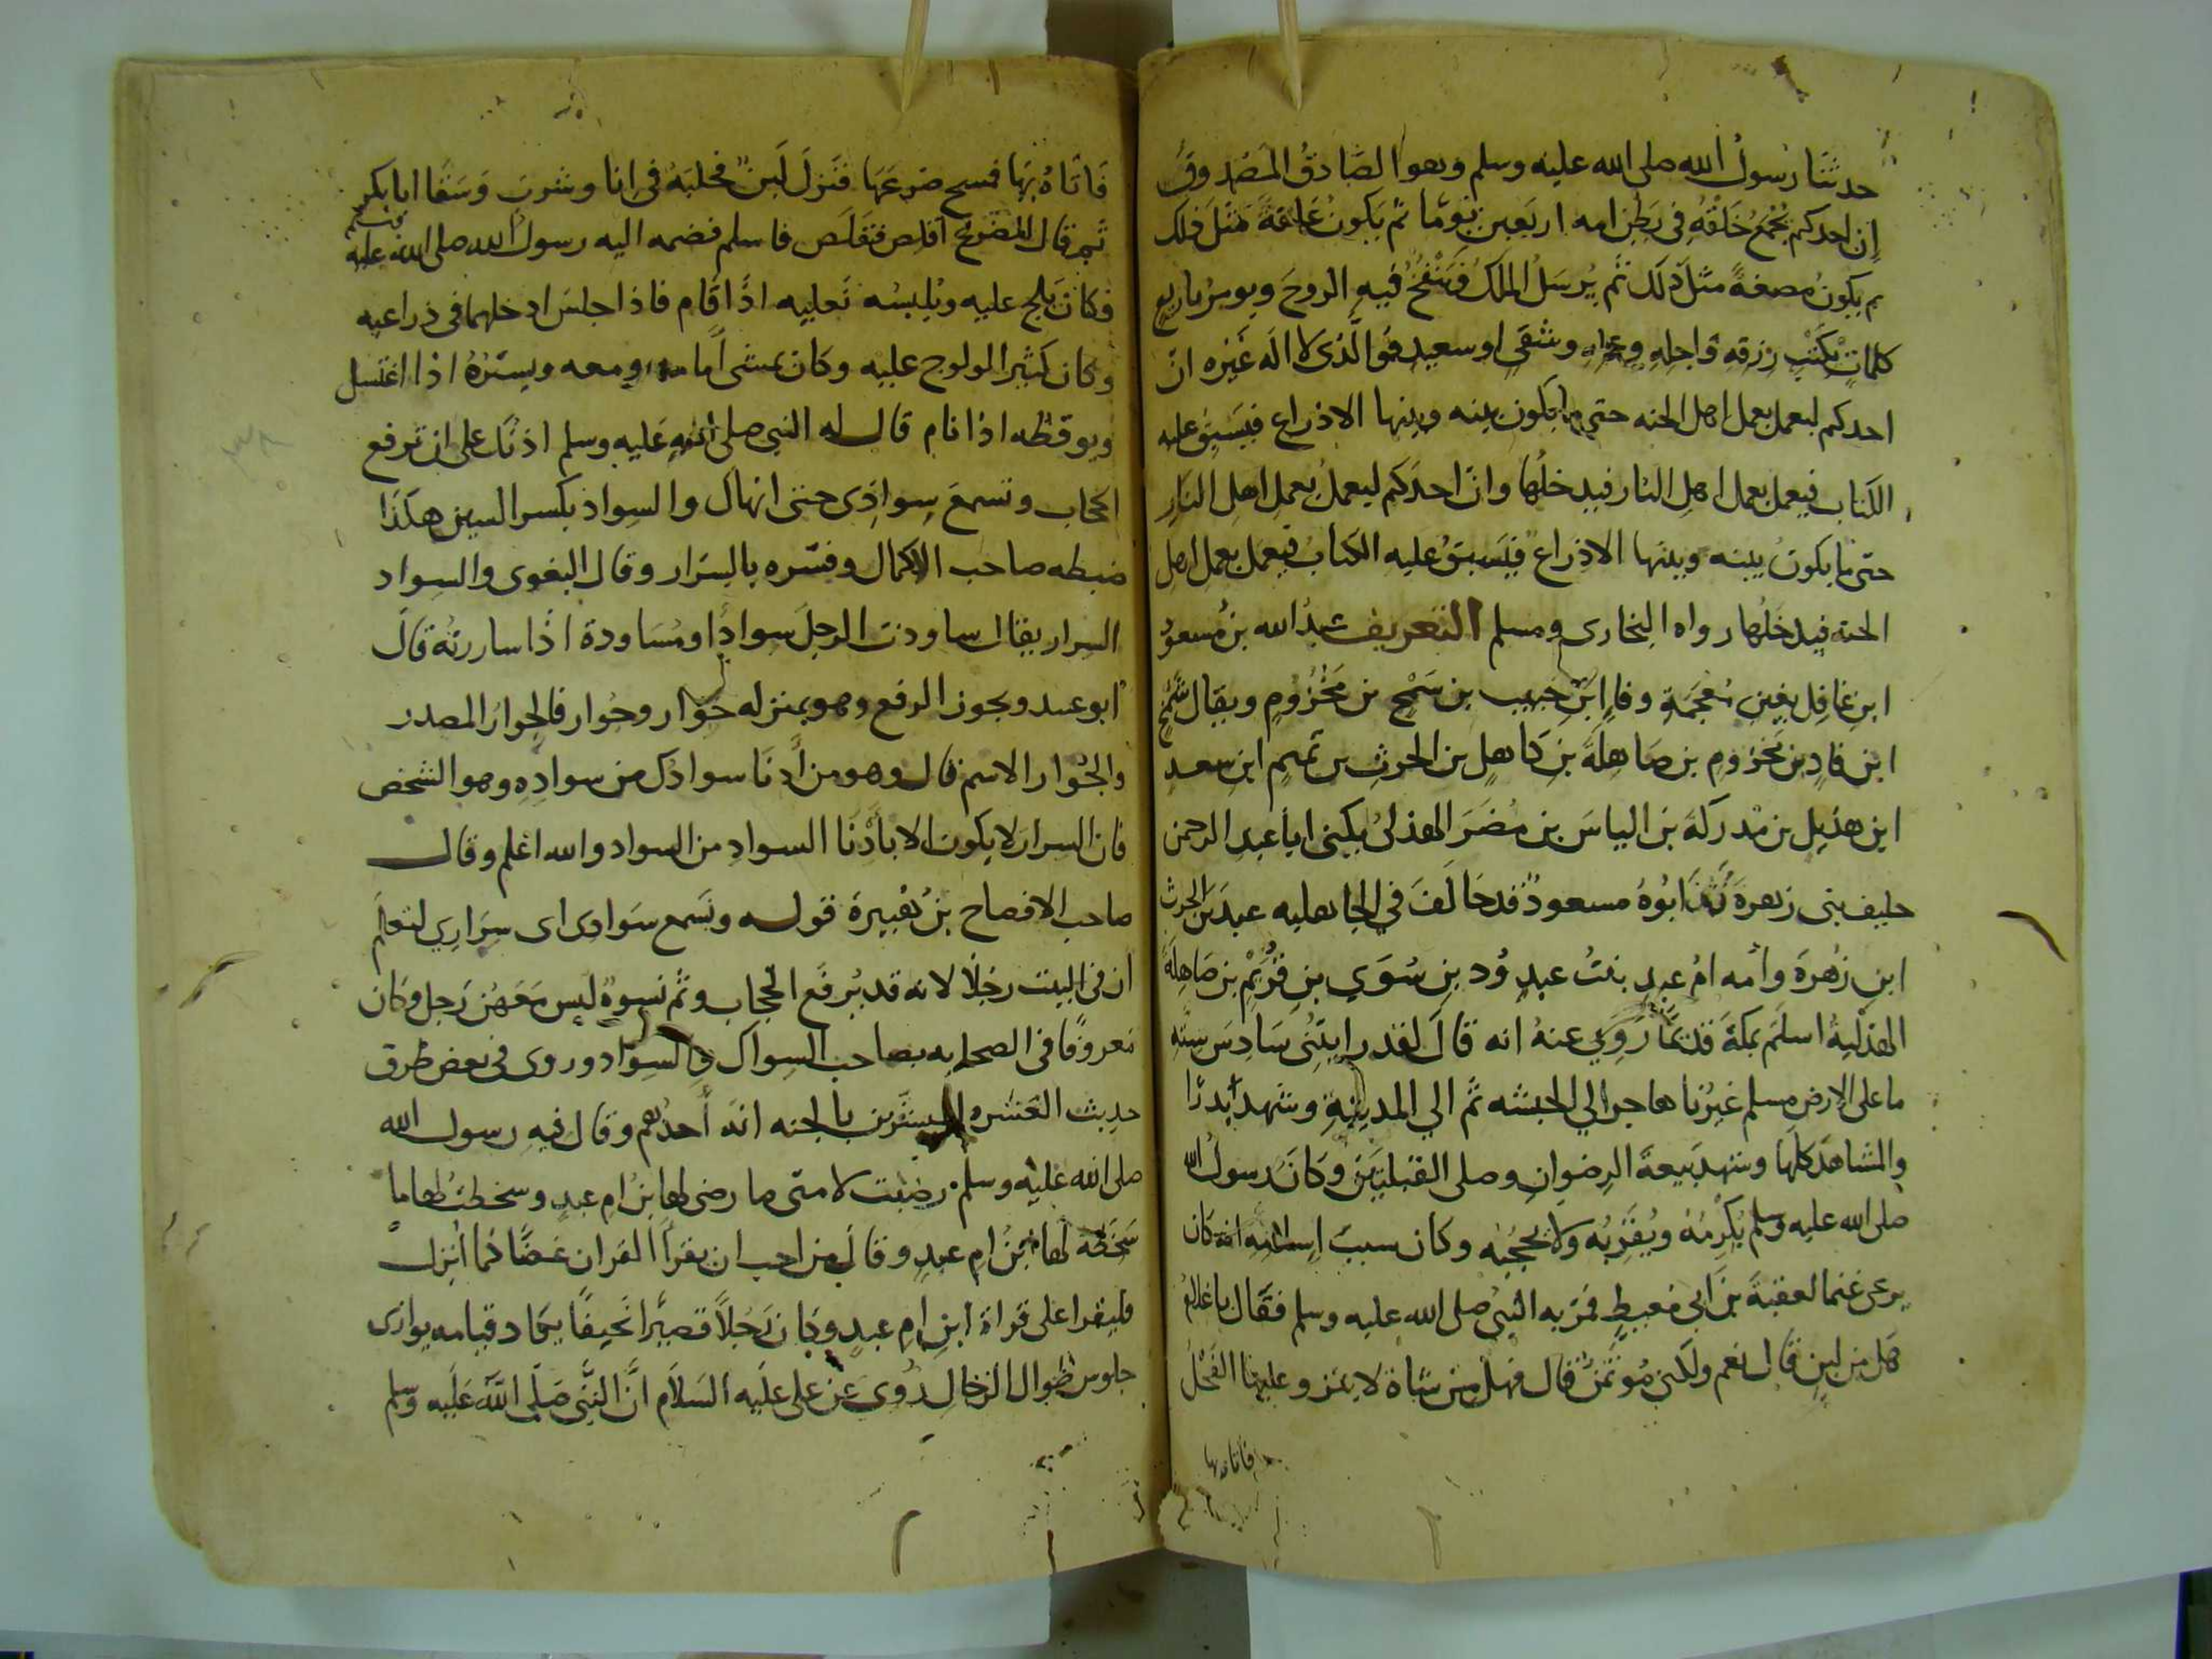 حدثنا رسول الله صلى الله عليه وسلم وهو الصَّادقُ المَصْدوقُ
إن احدكم يُجْمَعُ خَلْقُهُ فى بَطْنِ امه اربَعين يَومًا ثم يَكونُ عَلقةً مثلَ ذلك
ثم يكونُ مُضغةً مثلَ ذلك ثُم يُرسَلُ المَلَكُ فيَنْفُخُ فيهِ الروحَ ويومرُ باربعِ
كلماتٍ بكَتْبِ رزقهِ واجلِهِ وعملهِ وشقى او سعيد فوالَّذى لا اله غَيره انّ
احدكم ليعمل بعمل اهل الجنه حتى ما يكون بينه وبينها الا ذراع فيَسبق عليه
الكتاب فيعمل بعمل اهلِ النار فيدخلُها وانّ احدَكم ليعملُ بعملِ اهلِ النارِ
حتى ما يكونُ بينه وبينها الا ذراع فيَسبقُ عليه الكتابُ فيعمل بعملِ اهلِ
الجنة فيدخلُها رواه البخارى ومسلم التعريف عبدُ الله بنُ مسعودُ
ابنِ غافِل بغينٍ مُعجَمَةٍ وفاءٍ ابنِ حبيب بن شَمْخِ بن مَخْزُومٍ ويقال شَمْخُ
ابن فارِ بن مَخزومِ بن صَاهِلَةَ بنِ كَاهلٍ بن الحرثِ بن تَميمٍ ابنِ سعدِ
ابنِ هذيل بن مُدركَةَ بن الياسَ بن مضَرَ الهذلىُ يكنى ابا عبدِ الرحمنِ
حليف بنى زهرةَ كانَ ابُوهُ مسعودٌ قد حَالَفَ في الجاهليه عبدَ بنَ الحرث
ابنِ زُهرةَ وأُمه امُ عبدٍ بنتُ عبدِ وُد بنِ سُوَيِ بنِ قُرَيْمِ بن صَاهِلَةَ
الهذليةُ اسلَمَ بمكةَ قديمًا رُوِيَ عنهُ انه قالَ لقد رايتُنِى سَادِسَ سِتَّةٍ
ما على الارضِ مسلم غيرُنا هاجر الي الحبشه ثم الي المدينةِ وشهد بدرًا
والمشاهدَ كلَّها وشهد بَيعةَ الرِضوانِ وصلى القبلتَيَن وكَانَ رسولُ الله
صلى الله عليه وسلم يُكرِمُهُ ويُقَرِبُه ولا يحجُبُه وكان سبب إسلامِهِ انه كان
يرعى غنما لعقبةَ بن ابى مُعيطٍ فمَرّ به النبىُ صلى الله عليه وسلم فقَال يا غلامُ
هَل من لبنٍ قال نعم ولكنى مُوتَمَنٌ قال فهل من شاة لا ينز و عليها الفَحْلُ
فاتاه بها
فَاتَاهُ بِهَا فمسح ضرعَها فنَزلَ لَبنٌ فحلبَهُ فى انا وشربَ وَسَقَا ابا بكرٍ
ثم قال للضرعِ اقلِص فقَلَص فاسلم فضمه اليه رسول الله صلى الله عليه وسلم
فكانَ يَلج عليه ويُلبسُه نَعليه اذا قَام فاذا جلسَ ادخلهما فى ذراعيه
وكان كثيرَ الولوج عليه وكان يمشى أمامه ومعه ويستُرُهُ اذا اغتسل
ويوقظه اذا نام قال له النبى صلى الله عَليه وسلم اذنُكَ على ان ترفع
الحجاب وتسمعَ سِوادِى حتى انهاكَ والسِواد بكسرِ السين هكذا
ضبطه صاحب الاكمال وفسّره بالسِرار وقال البغوى والسِواد
السِرار يقال ساودت الرجل سِوادًا ومُسَاودة اذا ساررتُهُ قال
ابو عبيد ويجوز الرفع وهو بمنزله جِوَار وجُوار فالجِوارُ المصدر
والجُوار الاسم قال وهو من أدنَا سوادِك من سوادِهِ وهو الشخص
فان السرارَ لا يكون الا بأدنَا السوادِ من السواد والله اعلم وقال
صاحب الافصاح بنُ هُبيرةَ قوله وتَسمع سَوادى اى سِرَارِي لتعلَم
ان فى البيت رجلًا لانه قد يُرفَع الحجاب وثَم نسوةٌ ليس مَعَهُن رَجل وكان
معروفًا فى الصحابه بصاحب السِواك والسِواد وروى فى بعض طرق
حديث العَشره المبشَّرين بالجنه انَه أحدُهم وقال فيهِ رسول الله
صلى الله عليه وسلم رضيت لامتى ما رضى لها بنُ امِ عبدٍ وسخطتُ لها ما
سَخَطَه لها بنُ امِ عبدٍ وقالَ من احب ان يقرأَ القران غضًّا كما أُنزِل
فليقرا على قراة ابنِ امِ عبدٍ وكان رَجُلًا قصيرًا نَحيفًا يكاد قيامه يوازى
جلوس طِوال الرجَالِ رُويَ عن على علَيه السَلاَم انَّ النَّبيَ صَلَى اللَّهَ عَلَيه وسلم